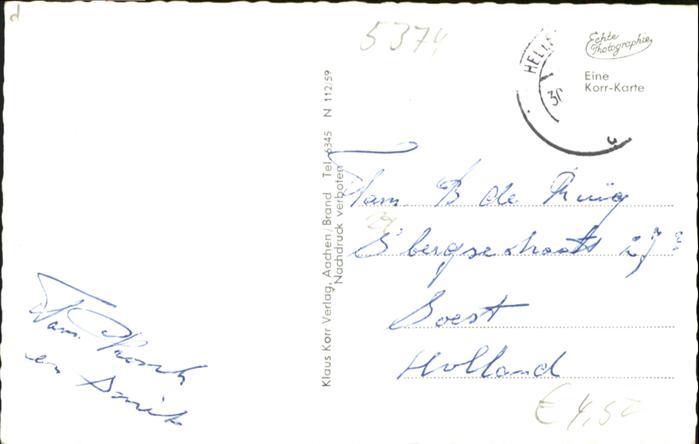 d
5374
HELLE
30
Echte
Photographie
Eine
Korr-Karte
Klaus Korr Verlag, Aachen/Brand Tel. 6345 N 112/59
Nachdruck verboten
Fam. B de Ruig
27
Soest
Holland
Fam.
en Smit
€ 4,50